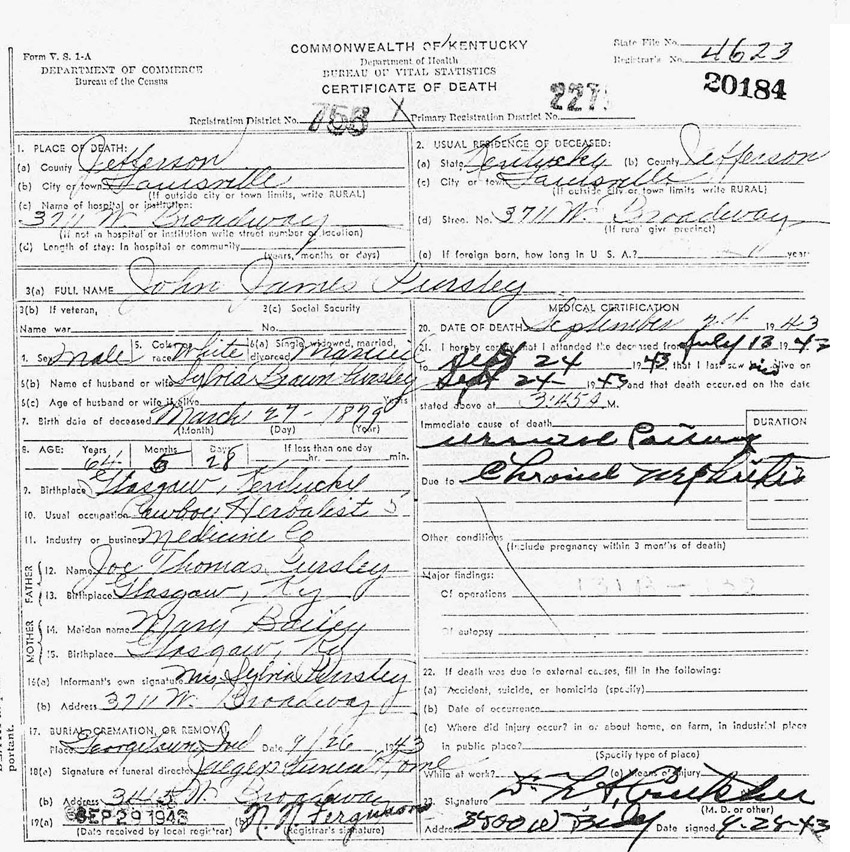 Form V. S. 1-A
DEPARTMENT OF COMMERCE
Bureau of the Census
COMMONWEALTH OF KENTUCKY
Department of Health
BUREAU OF VITAL STATISTICS
CERTIFICATE OF DEATH
State File No.
Registrar's No. 4623
20184
Registration District No. 753 X Primary Registration District No. 227
1. PLACE OF DEATH:
(a) County Jefferson
(b) City or town Louisville
(If outside city or town limits, write RURAL)
(c) Name of hospital or institution:
3711 W. Broadway
(If not in hospital or institution write street number or location)
(d) Length of stay: In hospital or community
(years, months or days)
2. USUAL RESIDENCE OF DECEASED:
(a) State Kentucky (b) County Jefferson
(c) City or town Louisville
(If outside city or town limits, write RURAL)
(d) Street No. 3711 W. Broadway
(If rural give precinct)
(e) If foreign born, how long in U. S. A.? years
3(a) FULL NAME John James Pursley
3(b) If veteran,
Name war
3(c) Social Security
No.
4. Sex Male 5. Color or race White 6(a) Single, widowed, married, divorced Married
6(b) Name of husband or wife Sylvia Brown Pursley
6(c) Age of husband or wife if alive Years
7. Birth date of deceased March 27 - 1879
(Month) (Day) (Year)
8. AGE: Years Months Days If less than one day
64 5 28 hr. min.
9. Birthplace Glasgow, Kentucky
10. Usual occupation Cowboy Herbalist 5
11. Industry or business Medicine Co
FATHER
12. Name Joe Thomas Pursley
13. Birthplace Glasgow, Ky
MOTHER
14. Maiden name Mary Bailey
15. Birthplace Glasgow, Ky
16(a) Informant's own signature Mrs Sylvia Pursley
(b) Address 3711 W. Broadway
17. BURIAL, CREMATION, OR REMOVAL
Place Georgetown, Ind Date 9/26 1943
18(a) Signature of funeral director Jaeger Funeral Home
(b) Address W. Broadway
19(a) SEP 29 1943 (b) N. N. Ferguson
(Date received by local registrar) (Registrar's signature)
MEDICAL CERTIFICATION
20. DATE OF DEATH September 24 1943
21. I hereby certify that I attended the deceased from July 13 1943
To Sept 24 1943, that I last saw him alive on
Sept 24- 1943 and that death occurred on the date
stated above at 3:45 M.
Immediate cause of death
DURATION
Due to Chronic nephritis
Other conditions
(Include pregnancy within 3 months of death)
Major findings:
Of operations
Of autopsy
22. If death was due to external causes, fill in the following:
(a) Accident, suicide, or homicide (specify)
(b) Date of occurrence
(c) Where did injury occur? in or about home, on farm, in industrial place
in public place?
(Specify type of place)
While at work? (e) Means of injury
23. Signature Dr.
(M. D. or other)
Address 3800 W Bdy Date signed 9-28-43
portant.